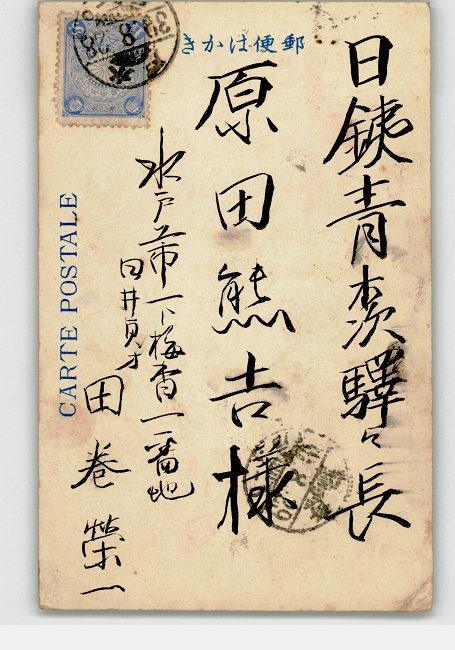 郵便はかき
日鉄青森驛々長
原田熊吉様
水戸市下梅香一番地
臼井貞才
田巻榮一
CARTE POSTALE